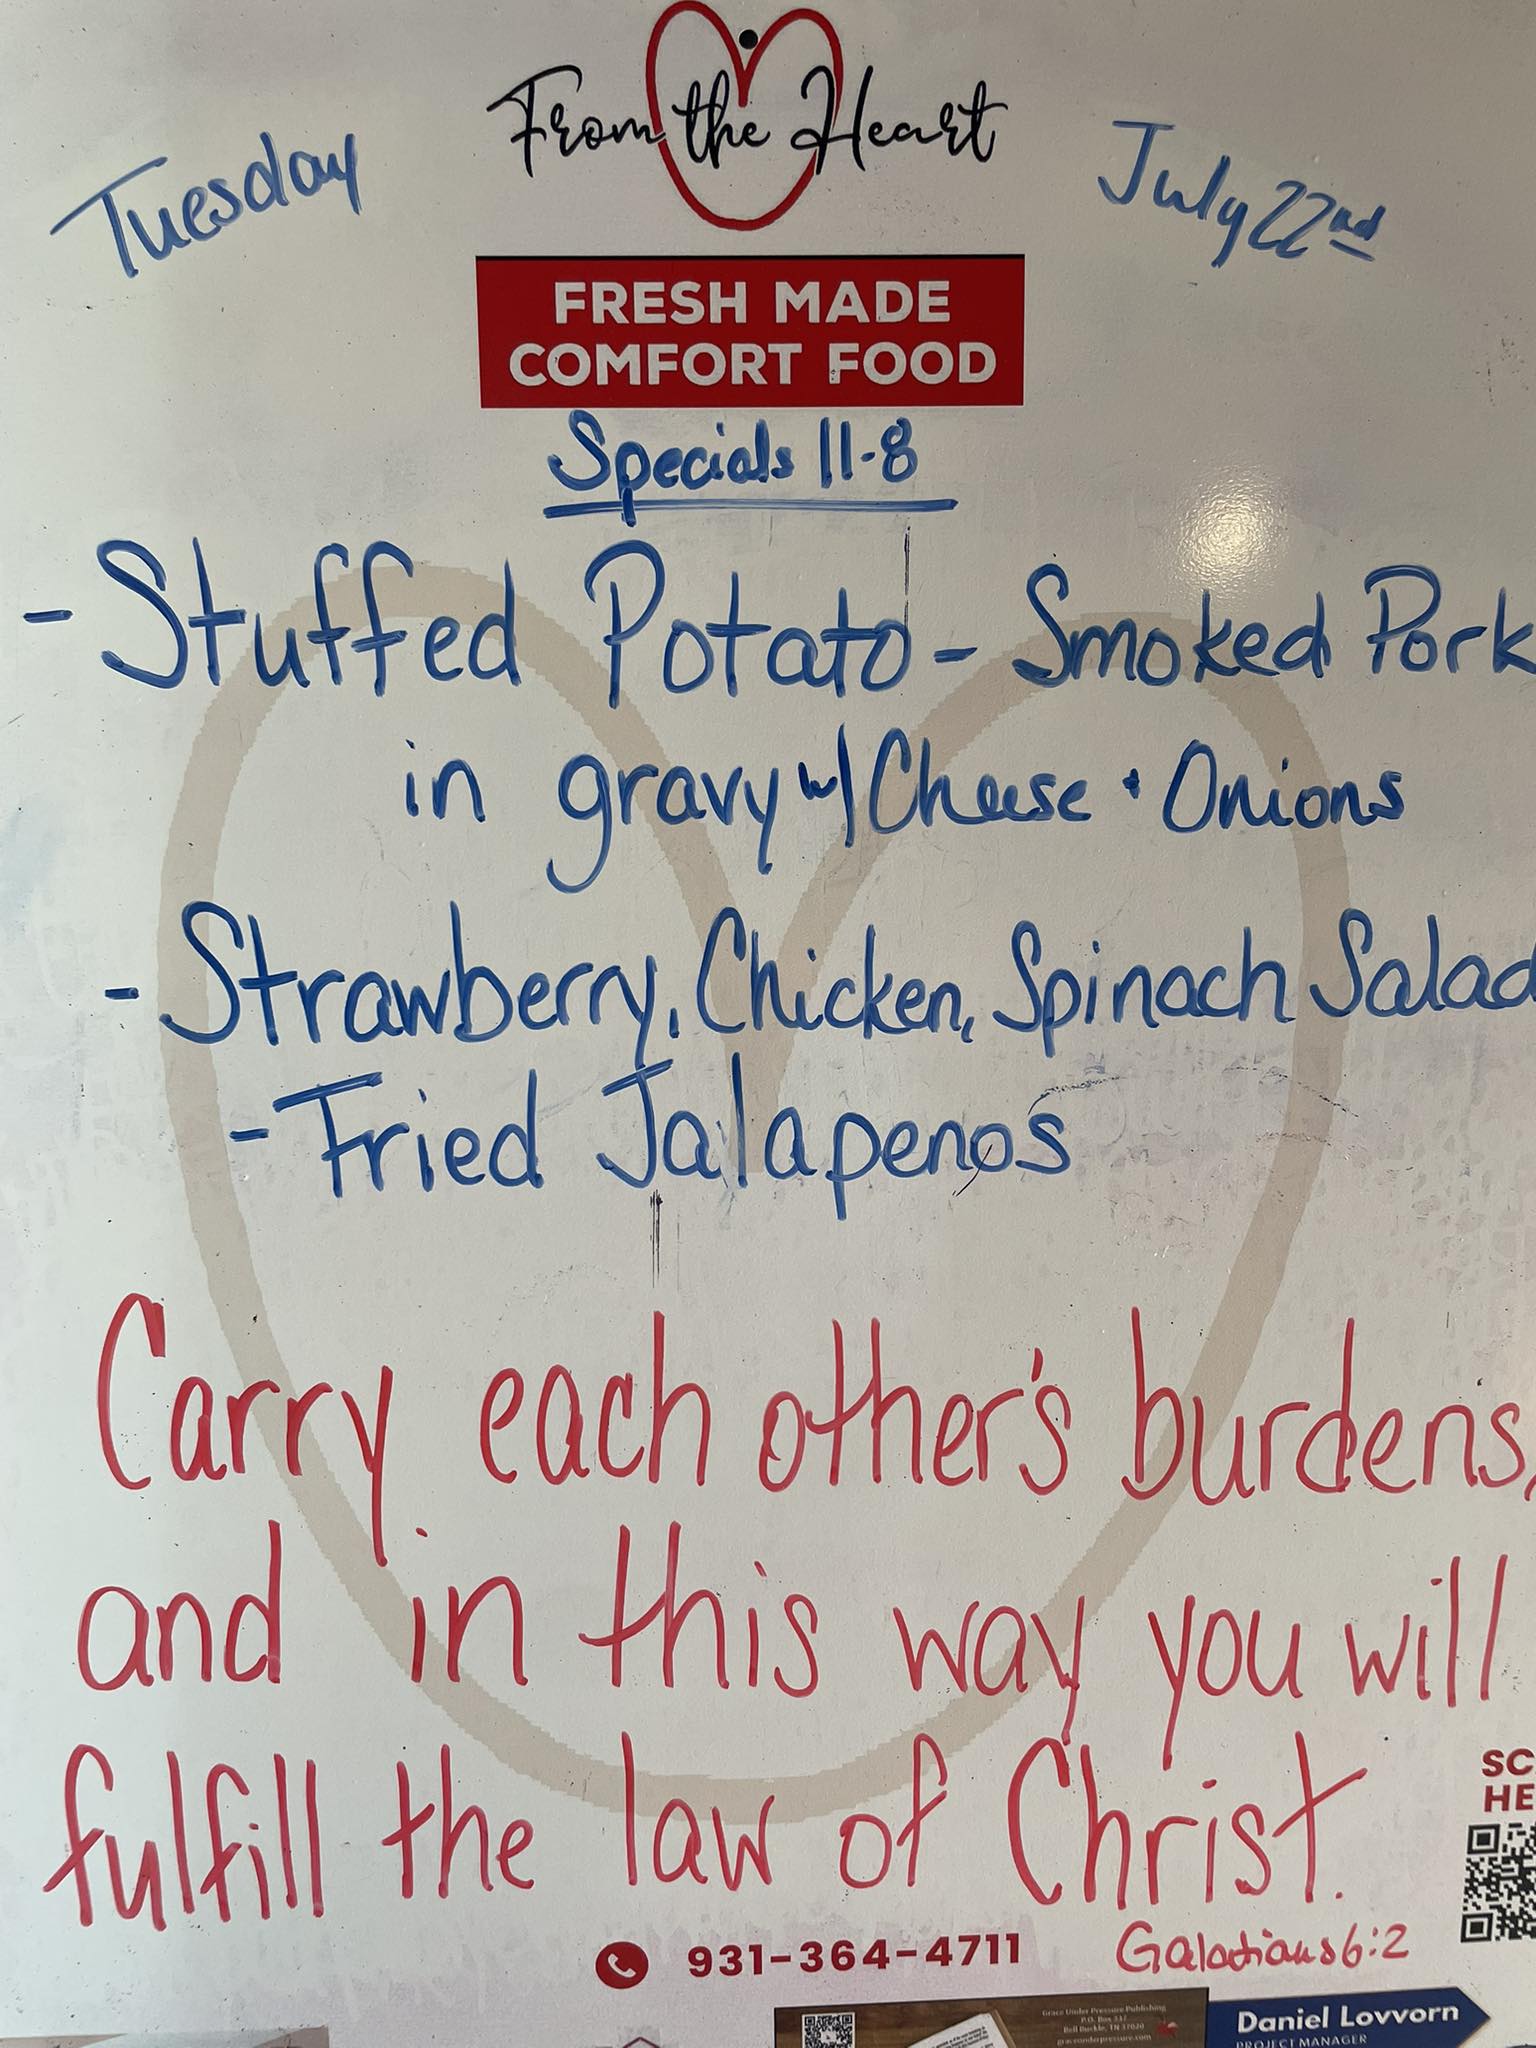 From the Heart
Tuesday
July 22nd
FRESH MADE
COMFORT FOOD
Specials 11-8
- Stuffed Potato - Smoked Pork
in gravy w/ Cheese + Onions
- Strawberry, Chicken, Spinach Salad
- Fried Jalapenos
Carry each other's burdens,
and in this way you will
fulfill the law of Christ.
Galatians 6:2
SC
HE
931-364-4711
Grace Under Pressure Publishing
P.O. Box 337
Bell Buckle, TN 37020
graceunderpressure.com
Daniel Lovvorn
PROJECT MANAGER